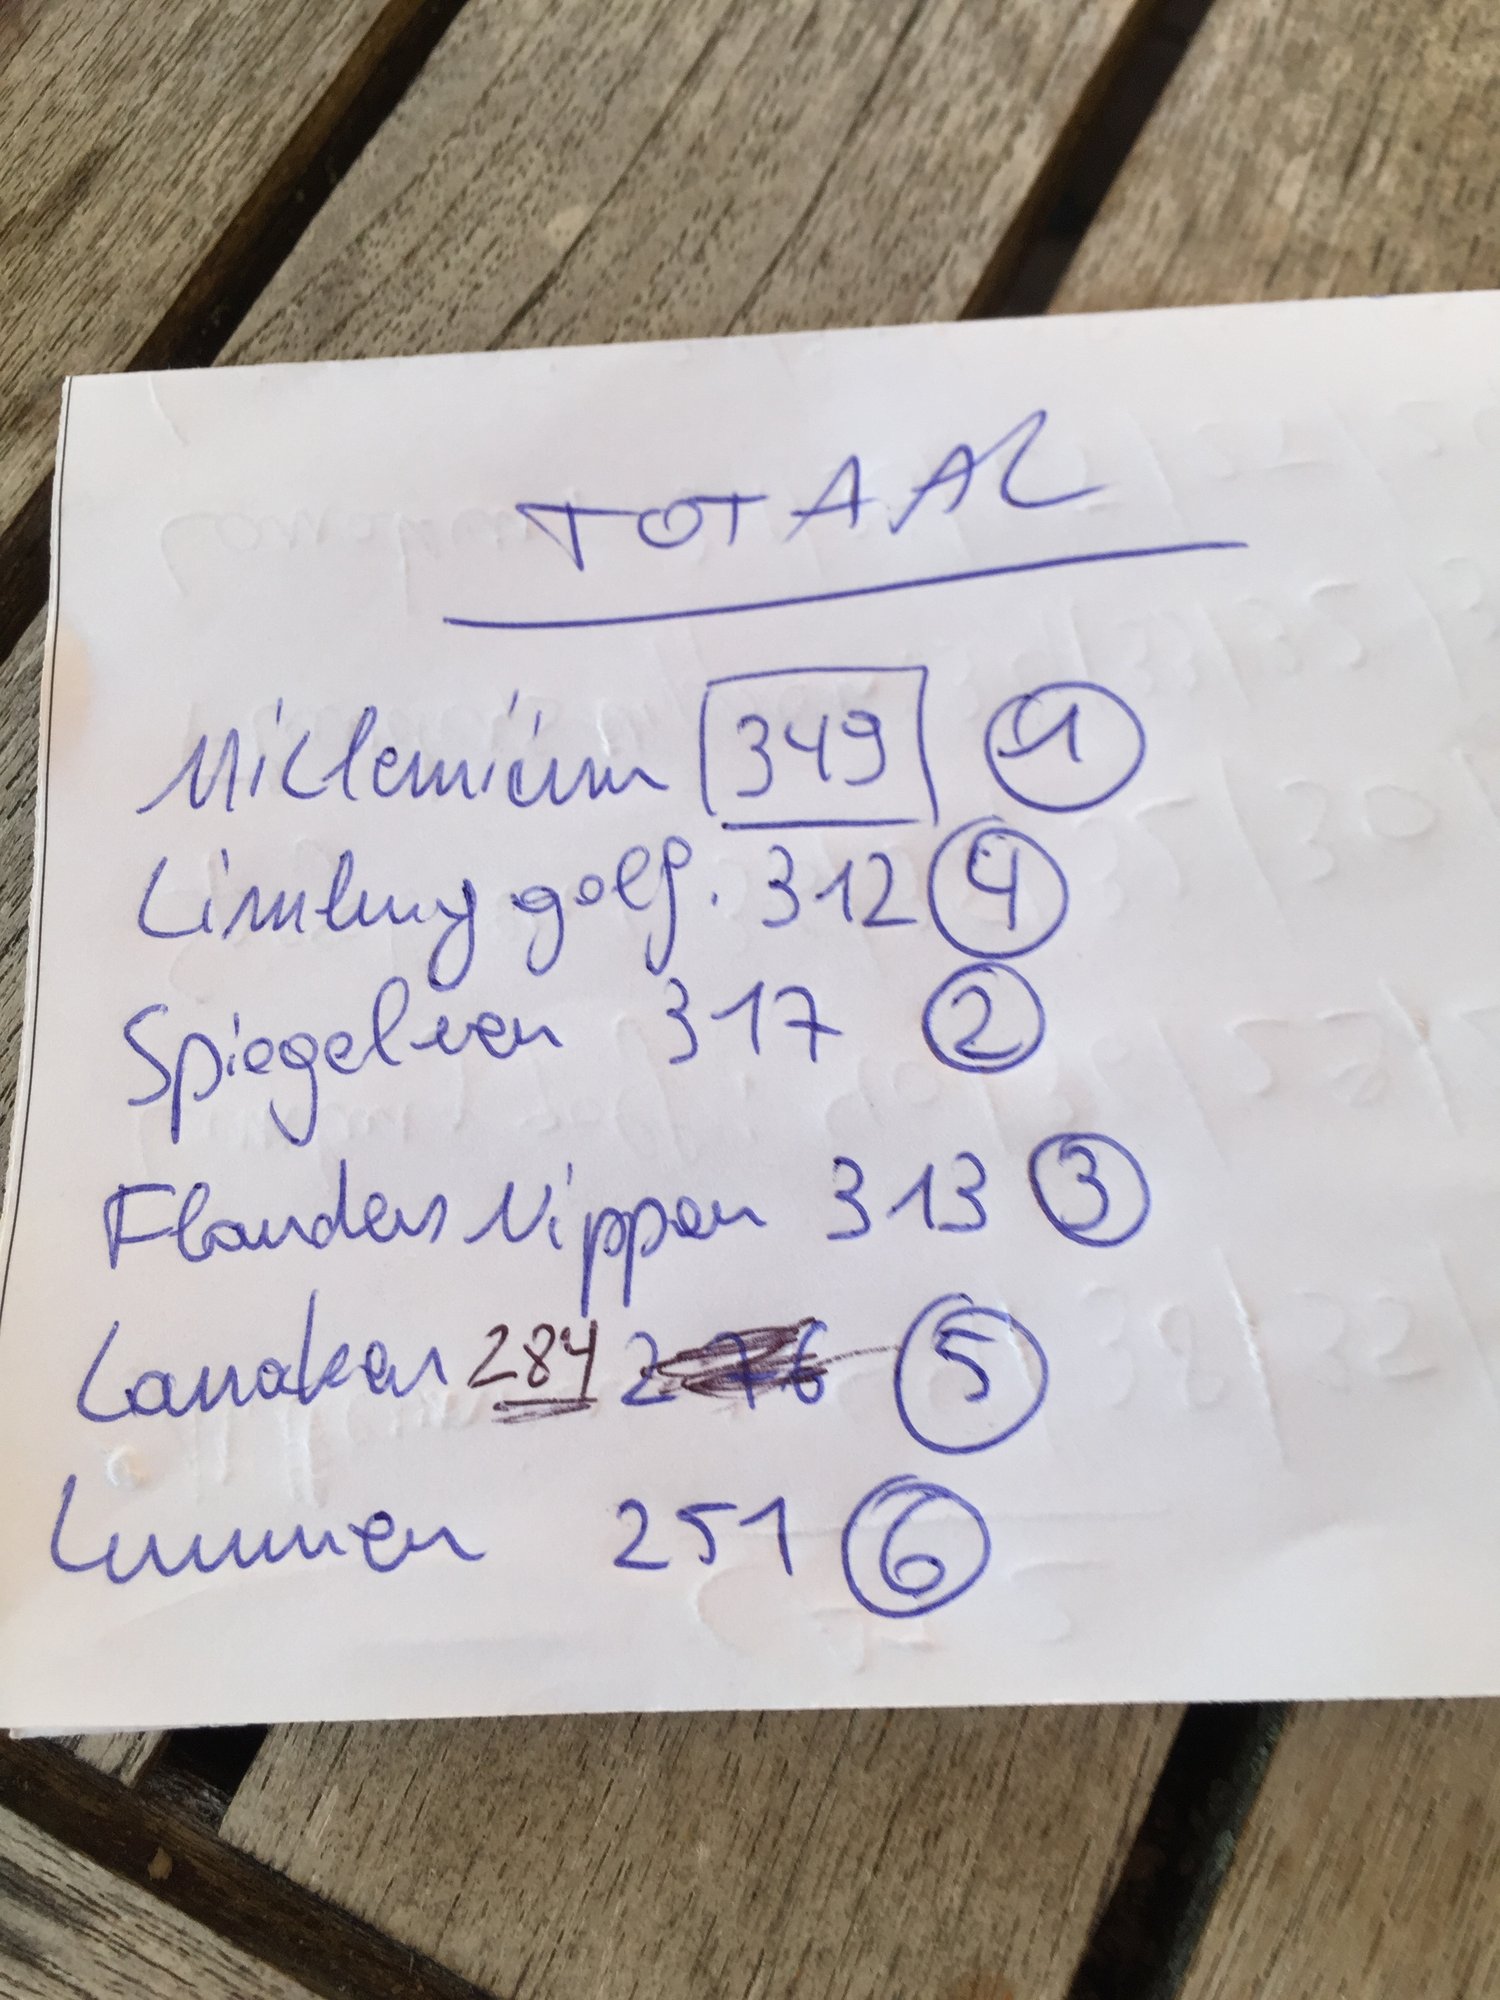 TOTAAL
Millennium 349 1
Limburg golf. 312 4
Spiegelven 317 2
Flanders Nippon 313 3
Lanaken 284 276 5
Lummen 251 6